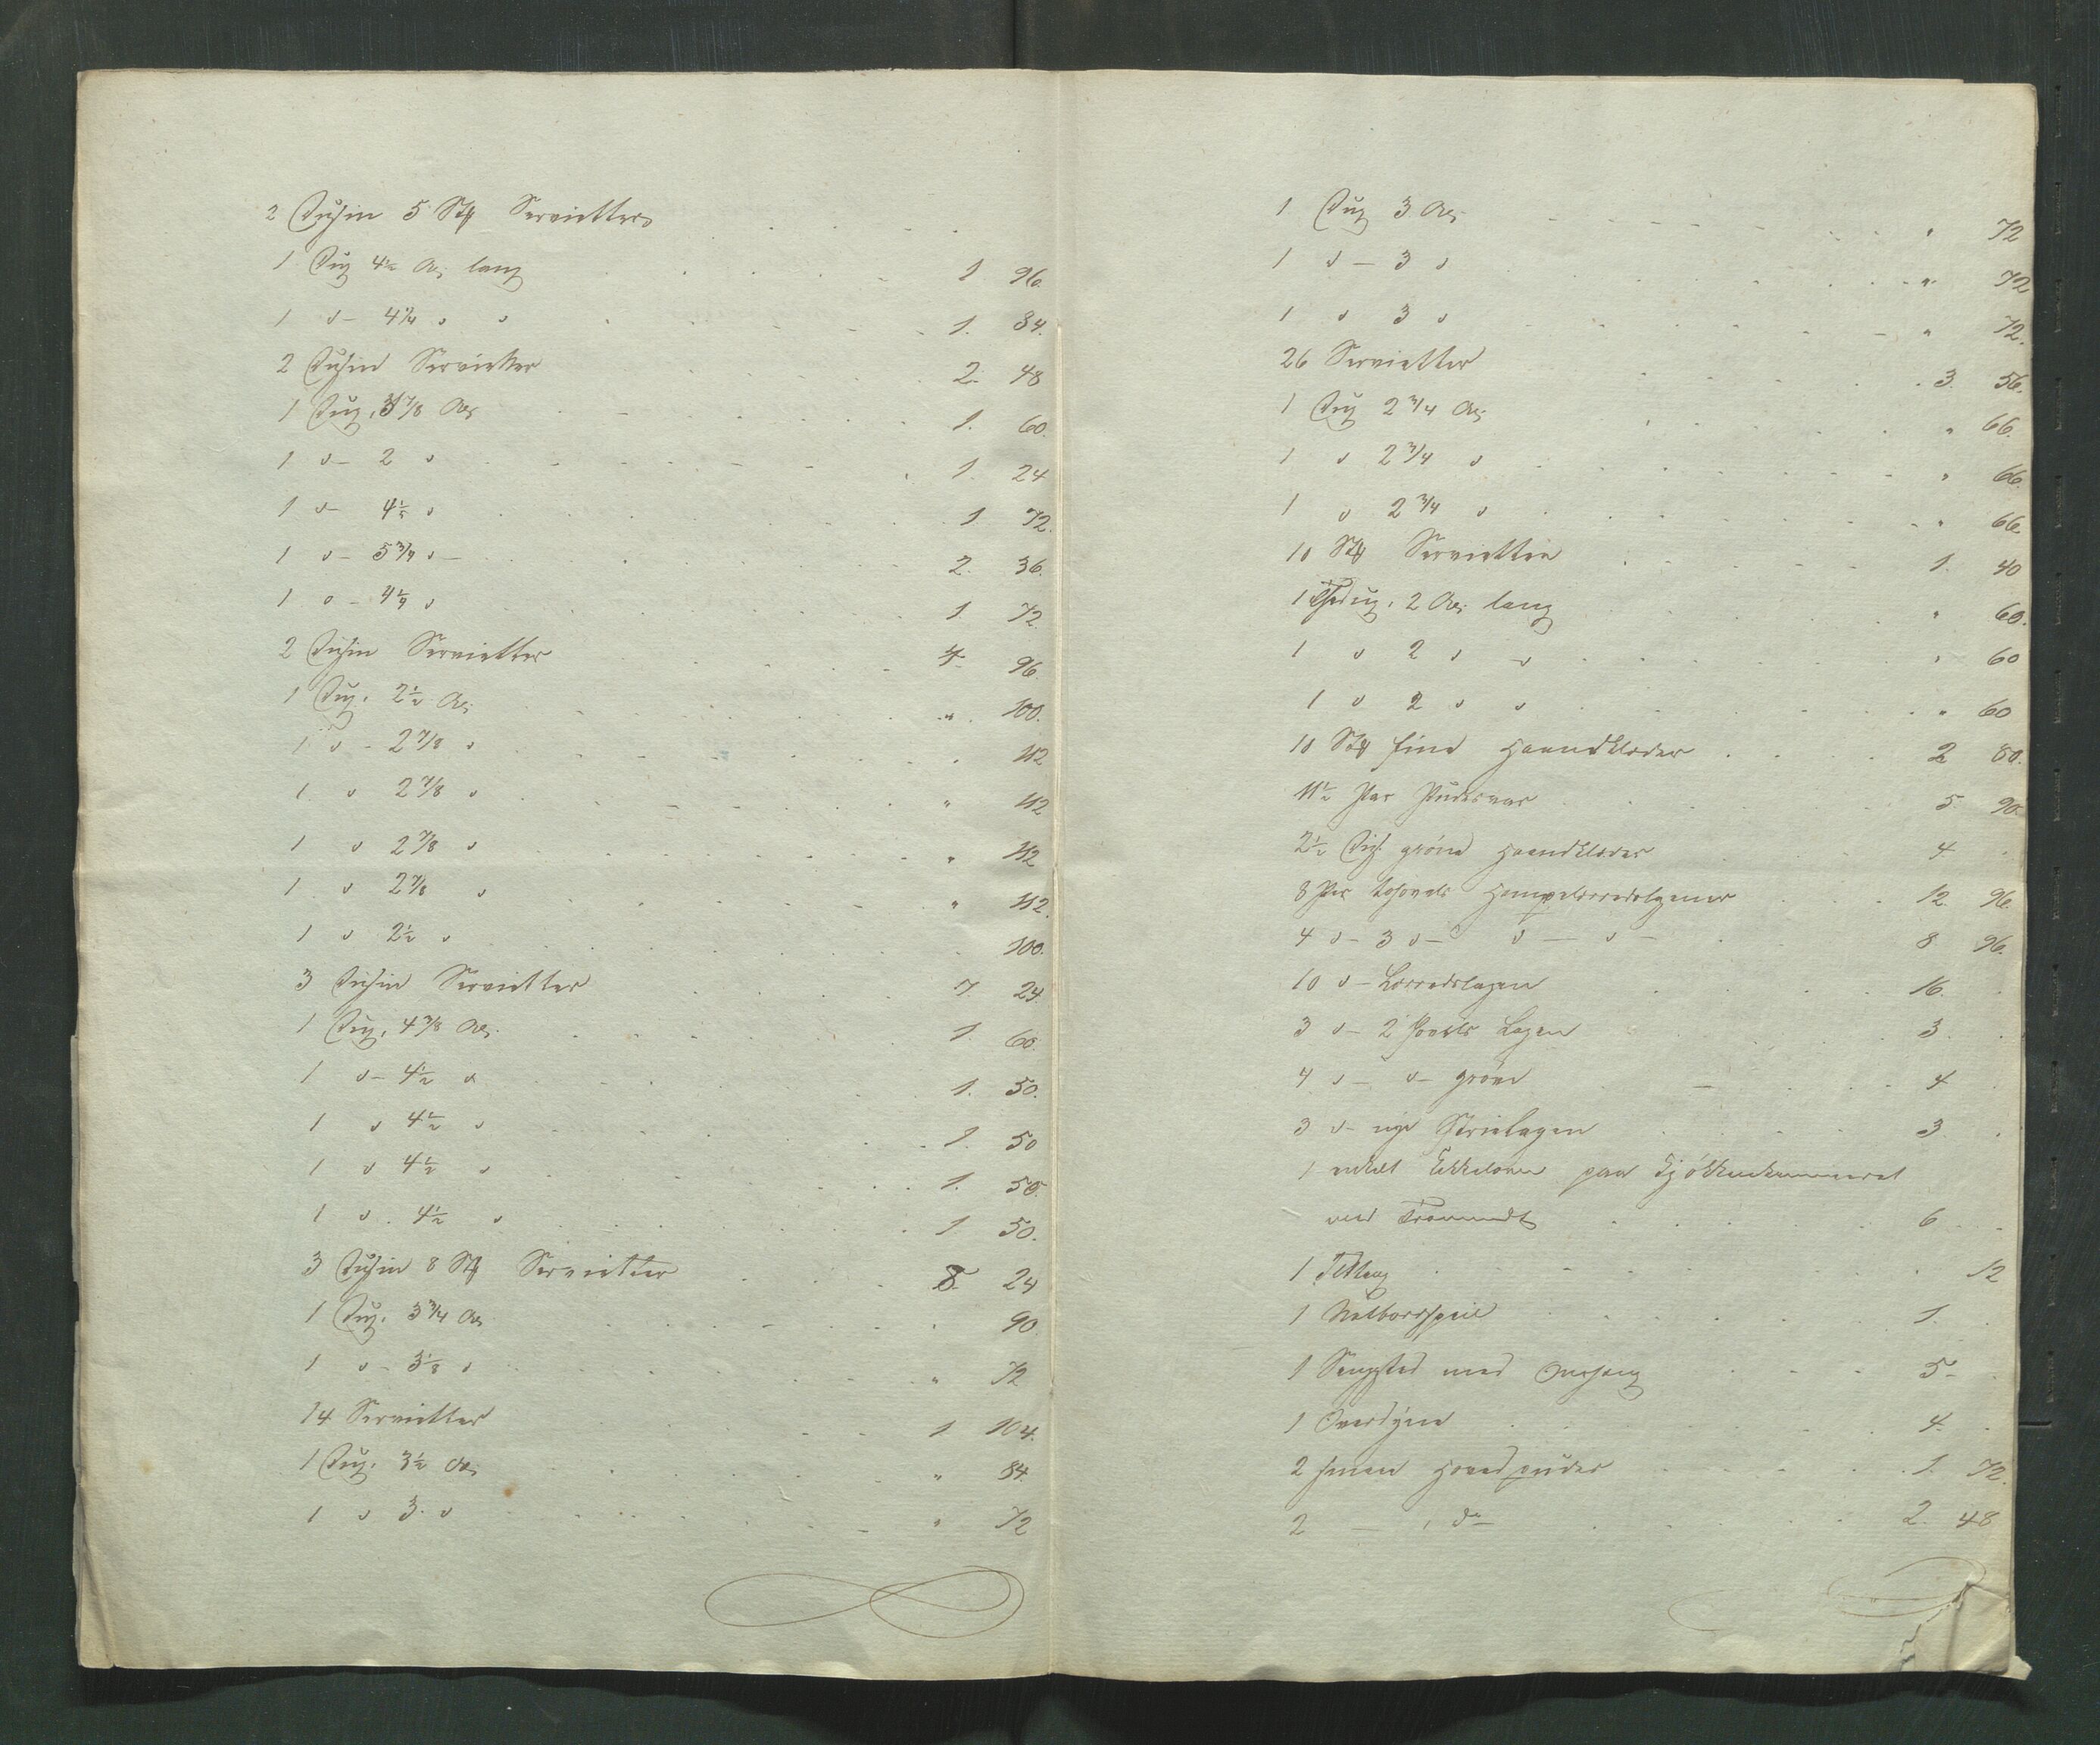 2 Dusin 5 Stk Servietter
1 Dug 4½ Al. lang 1 96.
1 " – 4¼ " " 1. 84.
2 Dusin Servietter 2. 48
1 Dug. 3⅞ Al. 1. 60.
1 " – 2 " 1. 24
1 " – 4½ " 1 72.
1 " – 5¾ " – 2. 36.
1 " – 4½ " 1. 72
2 Dusin Servietter 4 96.
1 Dug. 2½ Al. " 100.
1 " – 2⅞ " 112
1 " 2⅞ " " 112
1 " 2⅞ " " 112
1 " 2⅞ " " 112.
1 " 2½ " 100.
3 Dusin Servietter 7 24.
1 Dug. 4⅜ Al. 1. 60.
1 " – 4½ " 1. 50.
1 " 4½ " 1. 50
1 " 4½ " 1. 50.
1 " 4½ " 1 50.
3 Dusin 8 Stk Servietter 8 24
1 Dug. 3¾ Al. 90
1 " – 3⅛ " " 72
14 Servietter 1 104.
1 Dug. 3½ Al. " 84.
1 " 3 " " 72
1 Dug 3 Al. " 72
1 " – 3 " " 72
1 " 3 " " 72.
26 Servietter 3. 56.
1 Dug 2¾ Al. " 66.
1 " 2¾ " " 66.
1 " 2¾ " " 66
10 Stk Servietter 1. 40
1 2 Al. lang " 60.
1 " 2 " " " 60
1 " 2 " " " 60
10 Stk fine Haandklæder 2 80.
11½ Par Pudevar 5 90.
2½ Dus. grove Haandklæder 4
8 Par Hampelærredslagener 12. 96.
4 " – 3 " – " – " – 8 96.
10 " – Lærredslagen 16.
3 " – 2 Lagen 3.
4 " – " – grove 4
3 " – nye Strielagen 3
1 enkelt paa Kjökkenkammeret
ved 6
1 12
1 Natbordspeil 1.
1 Sengsted med Omhæng 5
1 Overdyne 4.
2 Hovedpuder 1. 72.
2 – , do – 2. 48